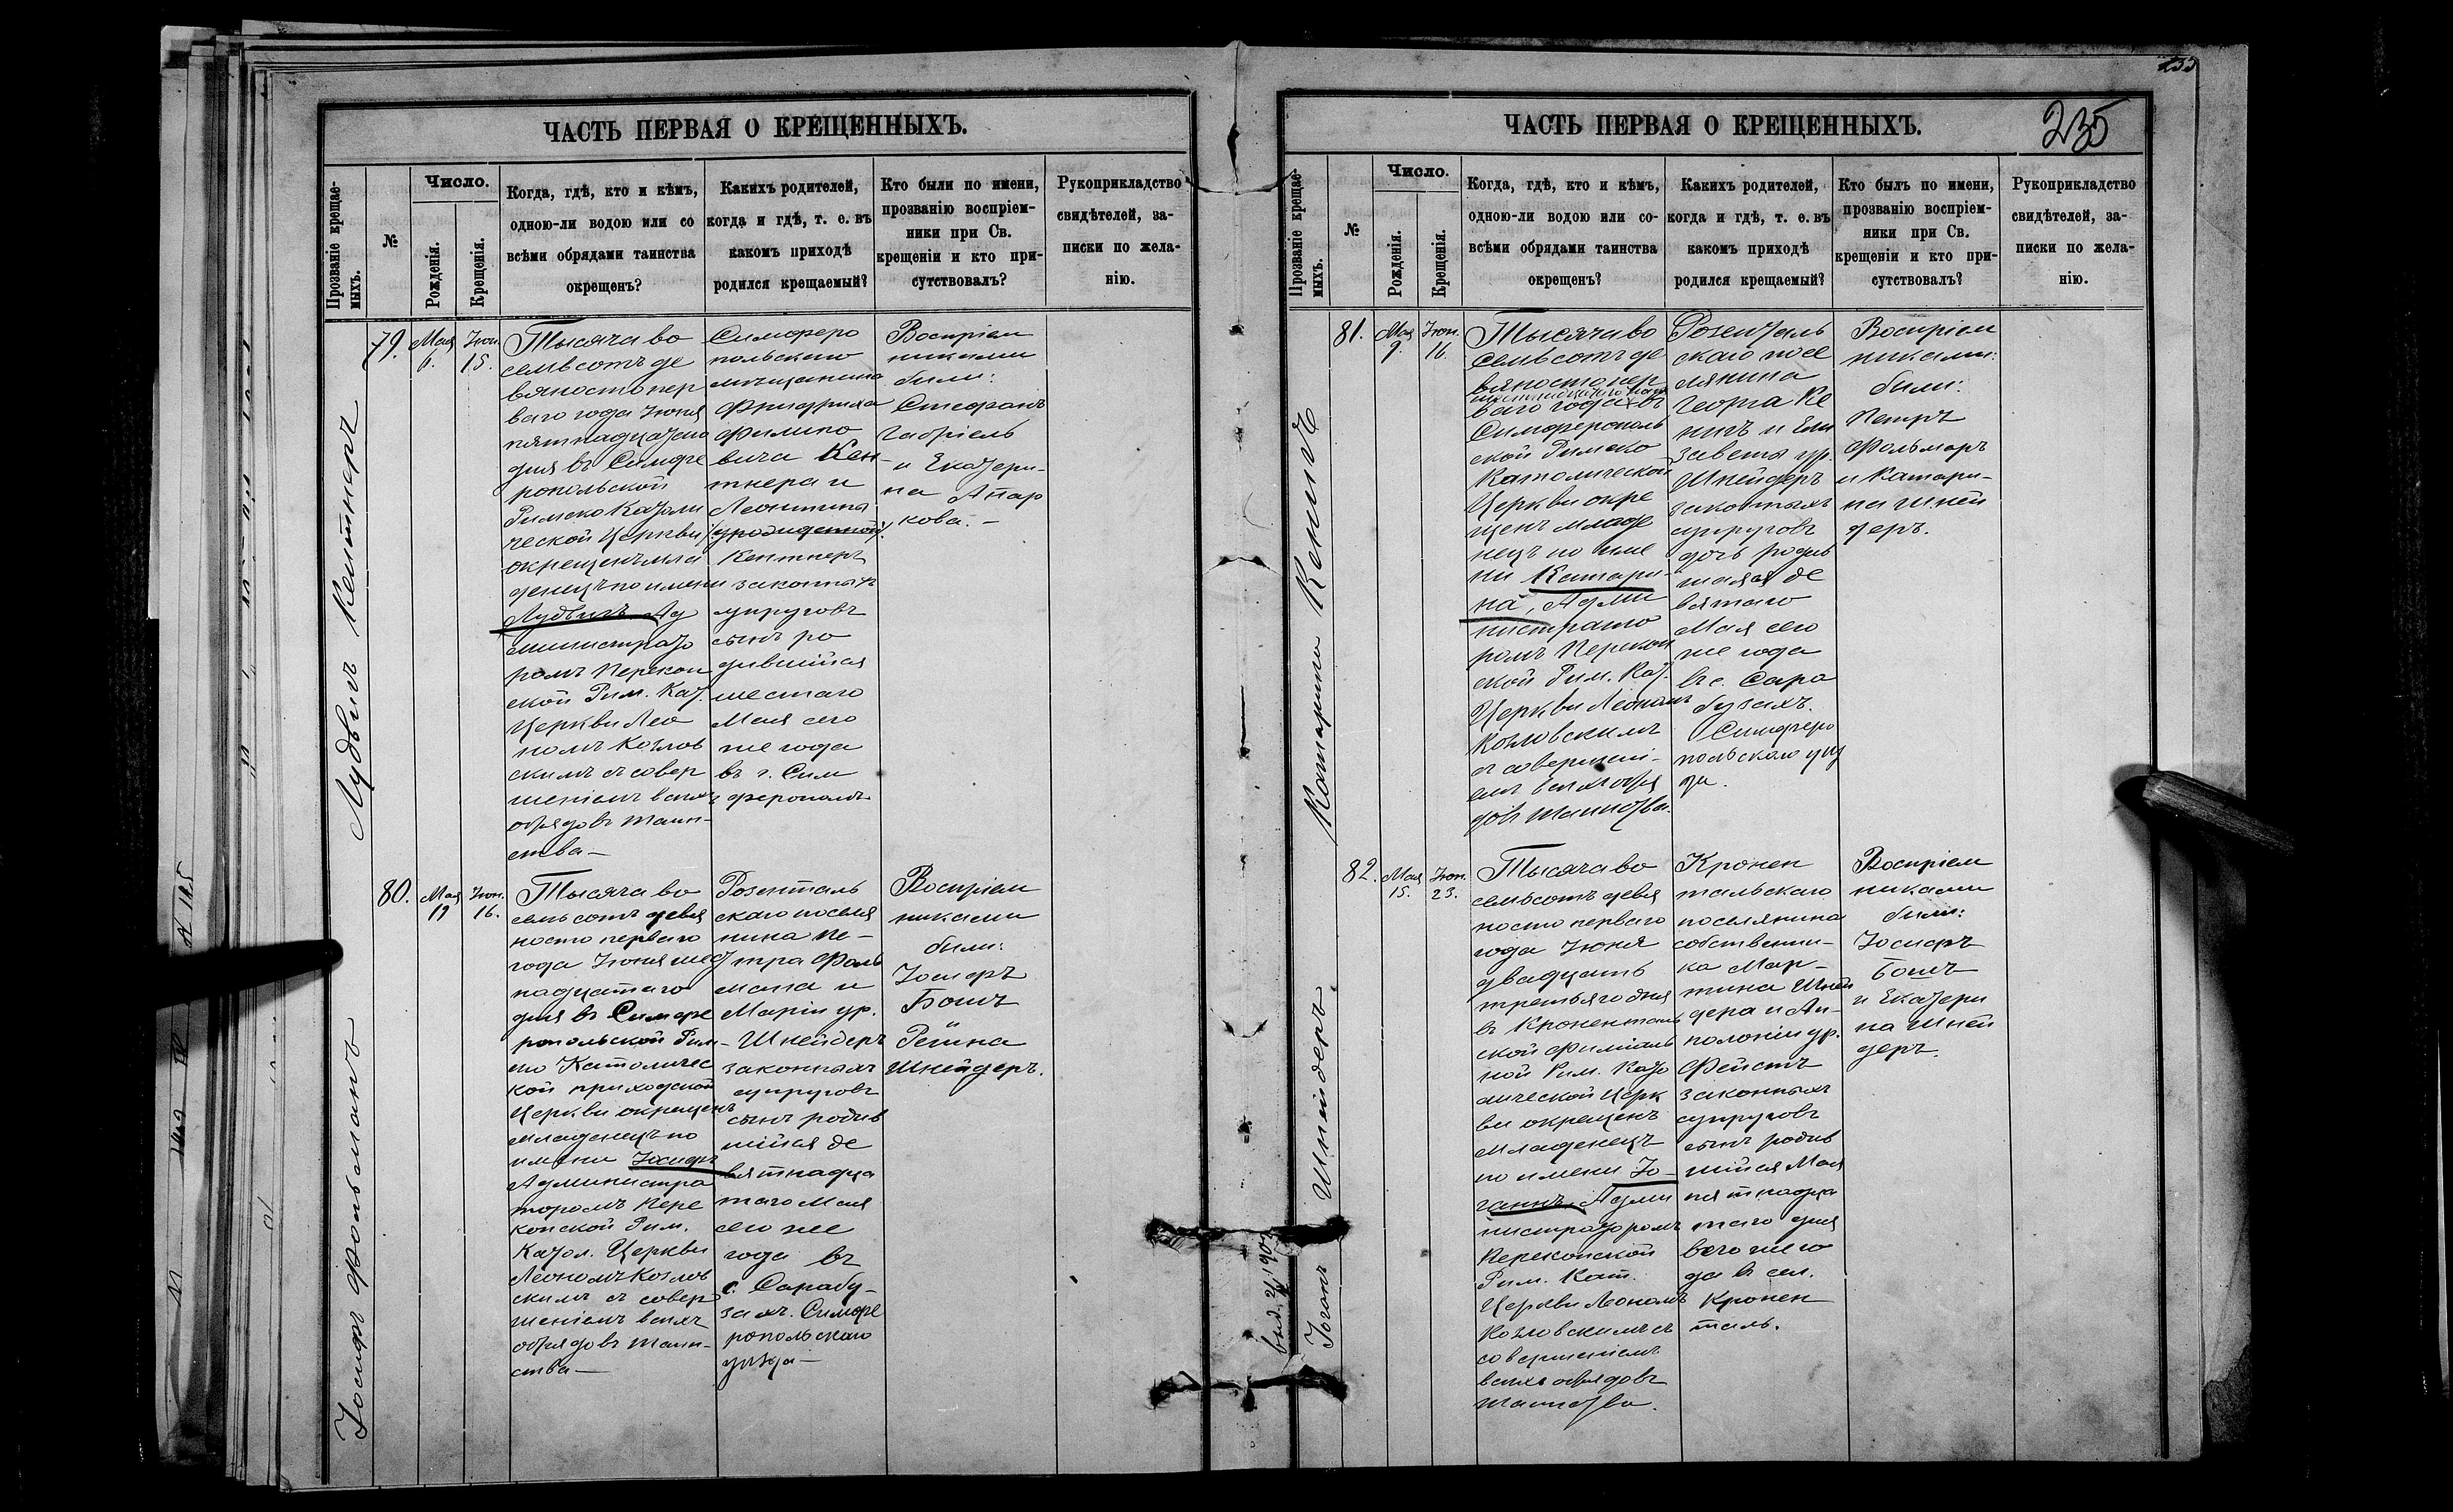 ЧАСТЬ ПЕРВАЯ О КРЕЩЕННЫХЪ.
Прозваніе крещае-
мыхъ.
№
Число.
Рожденія.
Крещенія.
Когда, гдѣ, кто и кѣмъ,
одною-ли водою или со
всѣми обрядами таинства
окрещенъ?
Какихъ родителей,
когда и гдѣ, т. е. въ
какомъ приходѣ
родился крещаемый?
Кто были по имени,
прозванію воспріем-
ники при Св.
крещеніи и кто при-
сутствовалъ?
Рукоприкладство
свидѣтелей, за-
писки по жела-
нію.
Лудвигъ Кентнеръ
79.
Мая
6.
Іюн.
15.
Тысяча во
семьсотъ де
вяносто пер
ваго года Іюня
пятнадцатаго
дня въ Симфе
ропольской
Римско Католи
ческой Церкви
окрещенъ мла
денецъ по имени
Лудвигъ Ад
министрато
ромъ Перекоп
ской Рим. Кат.
Церкви Лео
номъ Козлов
скимъ съ совер
шеніемъ всѣхъ
обрядовъ таин-
ства —
Симферо
польскаго
мѣщанина
Фридриха
Филипо
вича Кен-
тнера и
Леонтины
урожденной
Кентнеръ
законныхъ
супруговъ
сынъ ро
дившійся
шестаго
Мая сего
же года
въ г. Сим
ферополѣ
Воспріем
никами
были:
Стефанъ
Габріель
и Екатери-
на Апар
кова. —
Іосифъ Фольманъ
80.
Мая
19
Іюн.
16.
Тысяча во
семьсотъ девя
носто перваго
года Іюня шест
надцатаго
дня въ Симфе
ропольской Рим-
ско Католичес
кой приходской
Церкви окрещенъ
младенецъ по
имени Іосифъ
Администра
торомъ Пере
копской Рим.
Катол. Церкви
Леономъ Козлов
скимъ съ совер
шеніемъ всѣхъ
обрядовъ таин-
ства —
Розенталь
скаго поселя
нина Пе-
тра Фоль
мана и
Маріи ур.
Шнейдеръ
законныхъ
супруговъ
сынъ родив
шійся де
вятнадца
таго Мая
сего же
года въ
с. Сарабу-
захъ. Симфе
ропольскаго
уѣзда —
Воспріем
никами
были:
Іосифъ
Бошъ
Регина
Шнейдеръ.
ЧАСТЬ ПЕРВАЯ О КРЕЩЕННЫХЪ.
235
Прозваніе крещае-
мыхъ.
№
Число.
Рожденія.
Крещенія.
Когда, гдѣ, кто и кѣмъ,
одною-ли водою или со-
всѣми обрядами таинства
окрещенъ?
Какихъ родителей,
когда и гдѣ, т. е. въ
какомъ приходѣ
родился крещаемый?
Кто былъ по имени,
прозванію воспріем-
ники при Св.
крещеніи и кто при-
сутствовалъ?
Рукоприкладство
свидѣтелей, за-
писки по жела-
нію.
Катарина Кенигъ
81.
Мая
9.
Іюн.
16.
Тысяча во
семьсотъ де
вяносто пер
ваго года въ
Симферополь
ской Римско
Католической
Церкви окре
щенъ младе
нецъ по име
ни Катари-
на, Адми
нистрато
ромъ Перекоп
ской Рим. Кат.
Церкви Леономъ
Козловскимъ
съ совершені-
емъ всѣхъ обря
довъ таинства.
Розенталь
скаго посе
лянина
Георга Ке
нигъ и Ели
заветы ур.
Шнейдеръ
законныхъ
супруговъ
дочь родив
шаяся де
вятаго
Мая сего
же года
въ с. Сара
бузахъ.
Симферо
польскаго уѣз
да.
Воспріем
никами:
были:
Петръ
Фольмаръ
и Катари-
на Шней
деръ.
Іоганъ Шнейдеръ.
82.
Мая
15.
Іюн.
23.
Тысяча во
семьсотъ девя
носто перваго
года Іюня
двадцать
третьяго дня
въ Кроненталь
ской филіаль
ной Рим. Като
лической Церк
ви окрещенъ
младенецъ
по имени Іо-
ганнъ Адми
нистраторомъ
Перекопской
Рим. Кат.
Церкви Леономъ
Козловскимъ съ
совершеніемъ
всѣхъ обрядовъ
таинства.
Кронен
тальскаго
поселянина
собственни-
ка Мар-
тина Шней
дера и Ап-
полоніи ур.
Фейстъ
законныхъ
супруговъ
сынъ родив
шійся Мая
пятнадца
таго дня
сего же го
да въ сел.
Кронен
таль.
Воспріем
никами
были:
Іосифъ
Бошъ
и Екатери
на Шней
деръ.